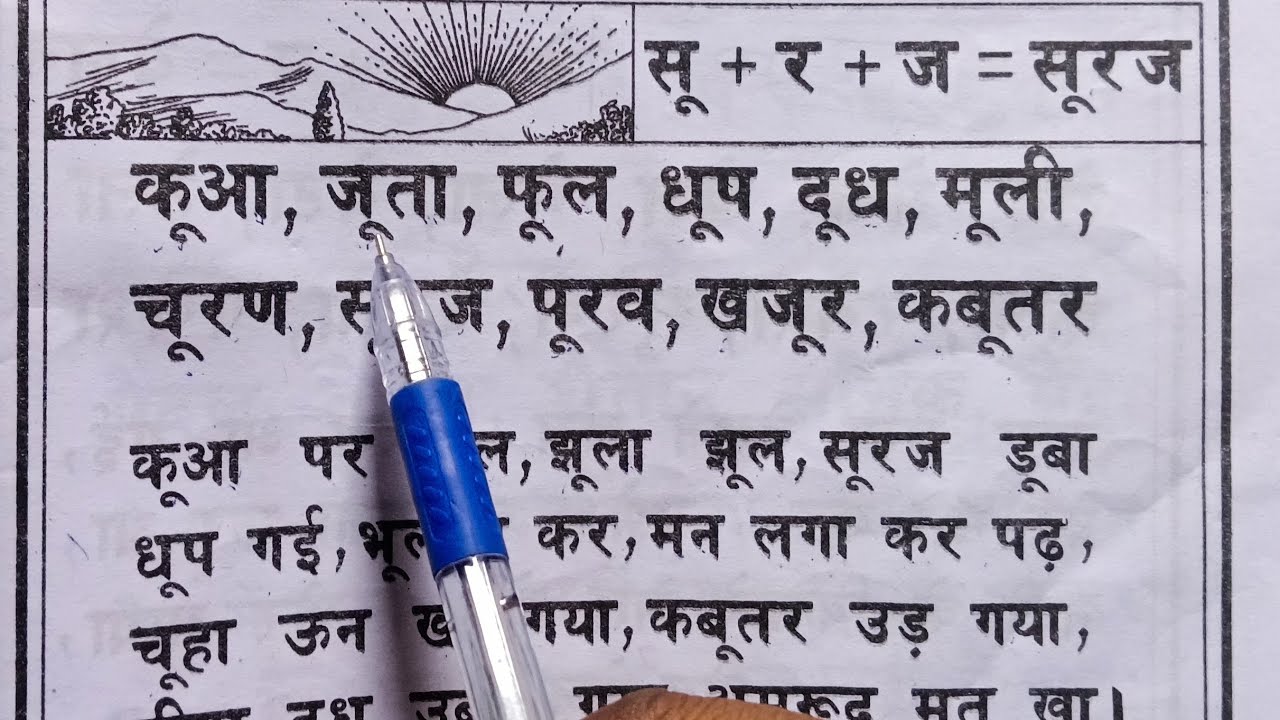 सू + र + ज = सूरज
कूआ, जूता, फूल, धूप, दूध, मूली,
चूरण, पूरव, खजूर, कबूतर
कूआ पर झूला झूल, सूरज डूबा
धूप गई, कर, मन लगा कर पढ़,
चूहा ऊन गया, कबूतर उड़ गया,
दूध अमरूद मत खा।